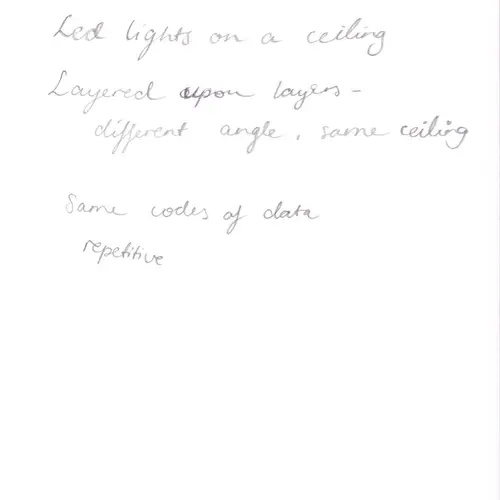 Led lights on a ceiling
Layered upon layers -
different angle, same ceiling
Same codes of data
repetitive